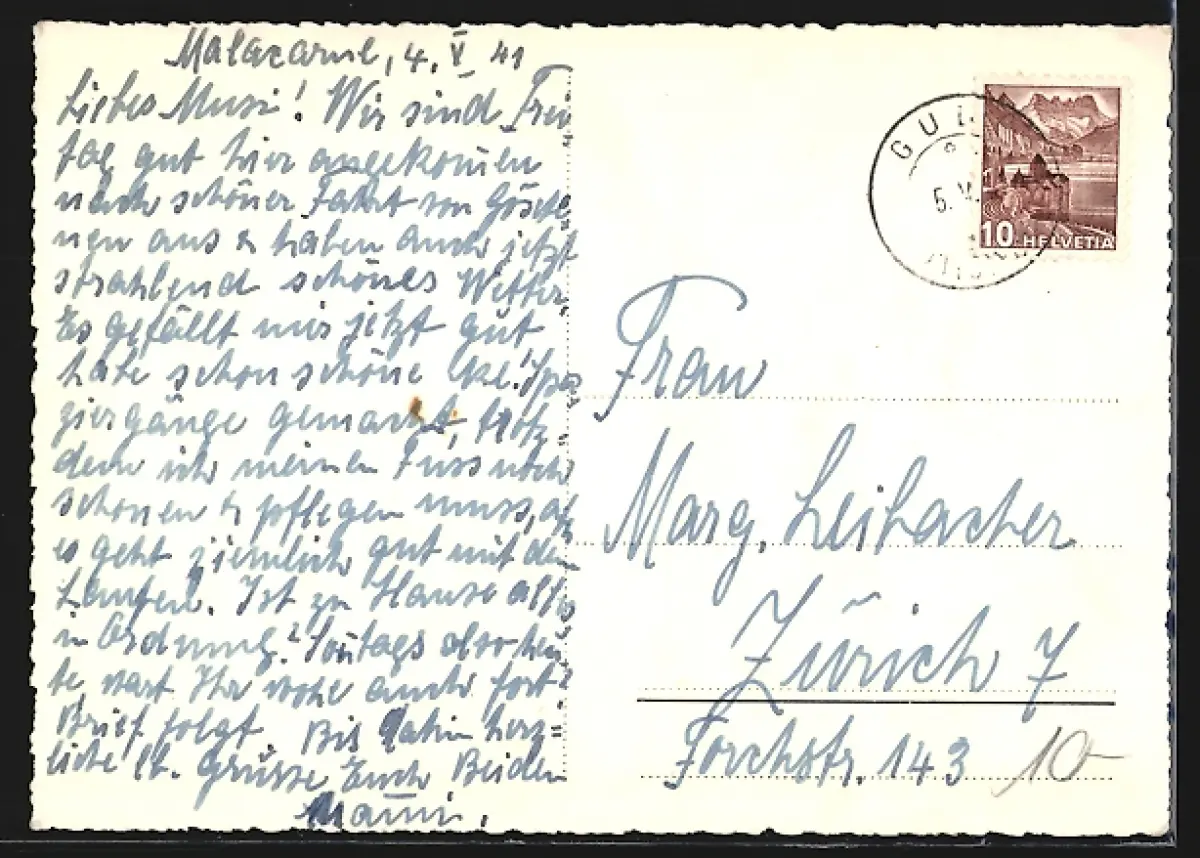 4. V. 41
Liebes Musi! Wir sind Frei
tag gut hier angekommen
nach schöner Fahrt von Gösche
nen aus & haben auch jetzt
strahlend schönes Wetter.
Es gefällt mir jetzt gut,
habe schon schöne kl. Spa
ziergänge gemacht, trotz=
dem ich meinen Fuss noch
schonen & pflegen muss,
es geht ziemlich gut mit dem
Laufen. Ist zu Hause alles
in Ordnung? Sonntags also heu
te, wart Ihr wohl auch fort?
Brief folgt. Bis dahin herz=
liche lb. Grüsse Euch Beiden
HELVETIA
10
Frau
Marg. Leibacher
Zürich 7
Forchstr. 143
10-